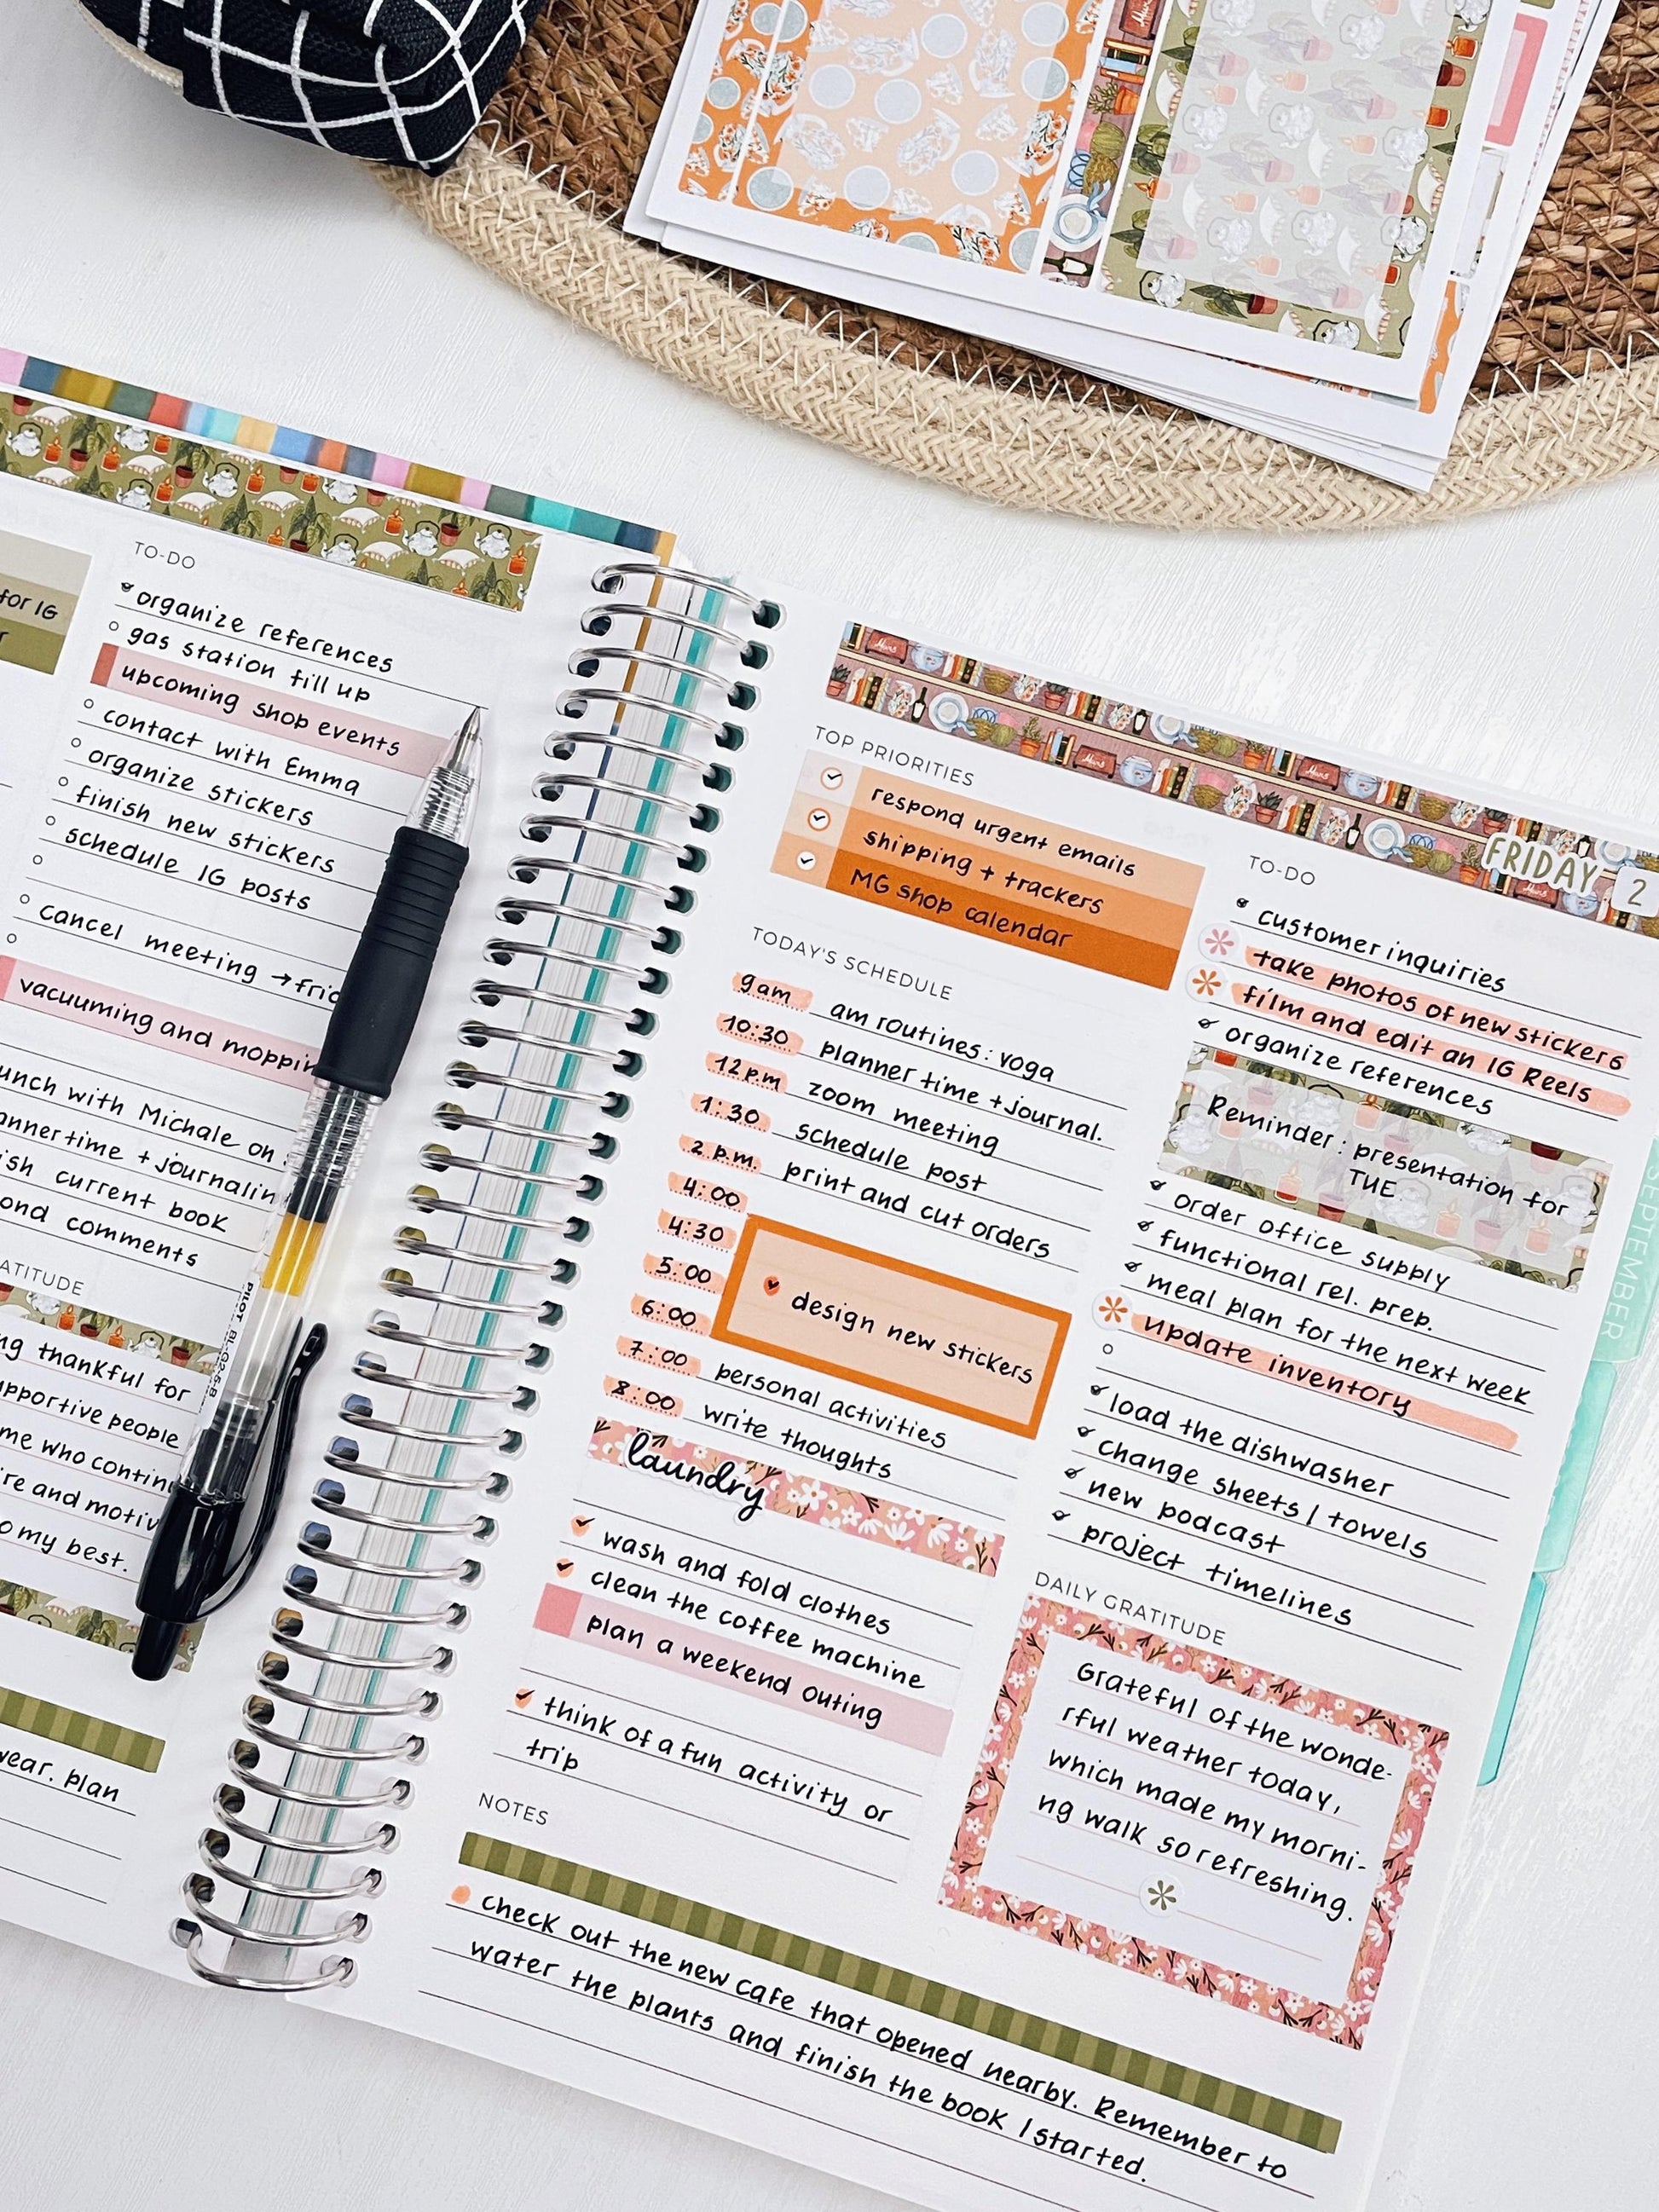 for IG
TO-DO
organize references
gas station fill up
upcoming shop events
contact with Emma
organize stickers
finish new stickers
schedule IG posts
cancel meeting →
vacuuming and
with Michale on
+
current book
comments
thankful for
people
me who
and
to my best.
wear. plan
PILOT BL-G2-5-B
FRIDAY 2
TOP PRIORITIES
respond urgent emails
shipping + trackers
MG shop calendar
TODAY'S SCHEDULE
9am am routines: yoga
10:30 planner time + journal.
12p.m zoom meeting
1:30 schedule post
2 p.m. print and cut orders
4:00
4:30
5:00 design new stickers
6:00
7:00 personal activities
8:00 write thoughts
laundry
wash and fold clothes
clean the coffee machine
plan a weekend outing
think of a fun activity or
trip
TO-DO
customer inquiries
take photos of new stickers
film and edit an IG Reels
organize references
Reminder: presentation for
TUE
order office supply
functional rel. prep.
meal plan for the next week
update inventory
load the dishwasher
change sheets / towels
new podcast
project timelines
DAILY GRATITUDE
Grateful of the wonde-
rful weather today,
which made my morni-
ng walk so refreshing.
NOTES
check out the new cafe that opened nearby. Remember to
water the plants and finish the book I started.
SEPTEMBER